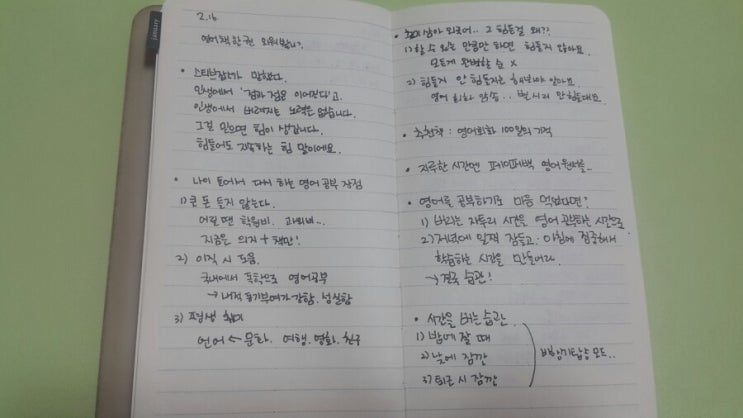 2.16
영어책 한 권 외워봤니?
• 스티브잡스가 말했다.
인생에서 '점과 점은 이어진다'고.
인생에서 버려지는 노력은 없습니다.
그걸 믿으면 힘이 생깁니다.
힘들어도 지속하는 힘 말이에요.
• 나이 들어서 다시 하는 영어 공부 장점
1) 큰 돈 들지 않는다.
어릴 땐 학원비. 과외비..
지금은 의지 + 책만!
2) 이직 시 도움.
국내에서 독학으로 영어공부
→ 내적 동기부여가 강함. 성실함
3) 평생 취미
언어 ← 문화. 여행. 영화. 친구
• 취미 삼아 외국어.. 그 힘든걸 왜??
1) 할 수 있는 만큼만 하면 힘들지 않아요.
모든게 완벽할 순 x
2) 힘들지 안 힘들지는 해봐야 알아요.
영어 회화 암송.. 별시리 안힘들대요
• 추천책 : 영어회화 100일의 기적
• 지루한 시간엔 페이퍼백 영어원서를..
• 영어를 공부하기로 마음 먹었다면?
1) 버리는 자투리 시간을 영어 공부하는 시간으로
2) 저녁에 일찍 잠들고. 아침에 집중해서
학습하는 시간을 만들어라.
→ 결국 습관!
• 시간을 버는 습관
1) 밤에 잘 때
2) 낮에 잠깐
3) 퇴근 시 잠깐
모드..